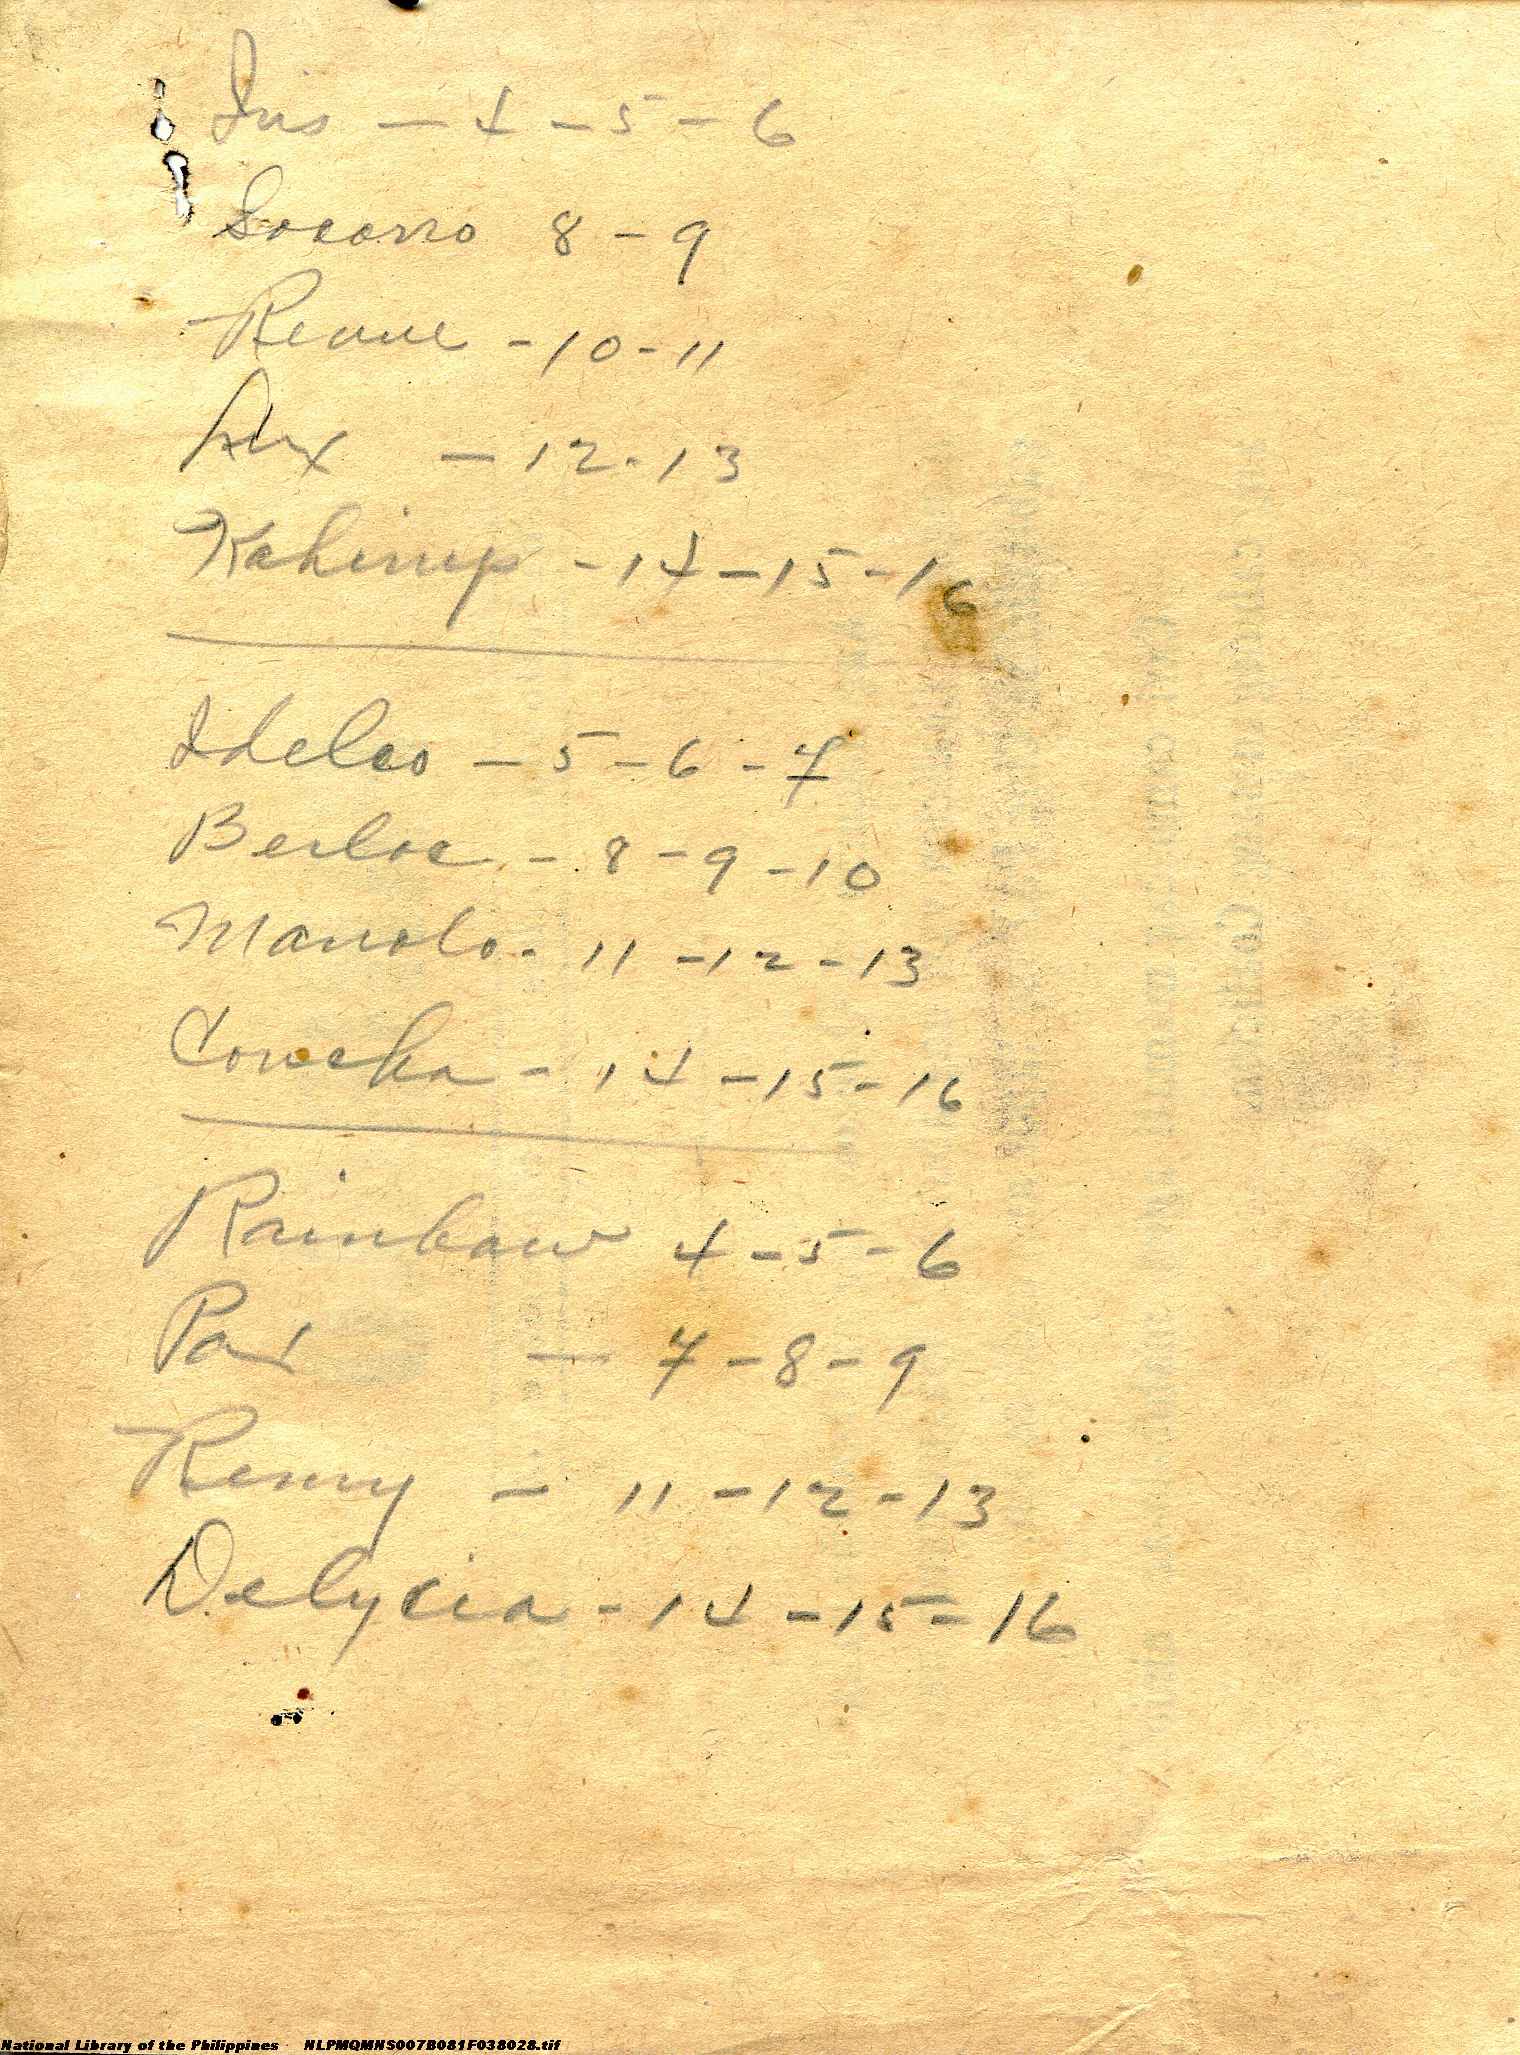 Iris — 4 – 5 – 6
Socorro 8 – 9
Revue – 10 – 11
Lux — 12 - 13
Kahirup – 14 – 15 – 16
Idelco — 5 – 6 – 7
Berloc – 8 – 9 – 10
Manolo - 11 – 12 – 13
Concha – 14 – 15 – 16
Rainbow 4 – 5 – 6
Pax — 7 – 8 – 9
Remy – 11 – 12 – 13
Delycia – 14 – 15 – 16
National Library of the Philippines NLPMQMNS007B081F038028.tif